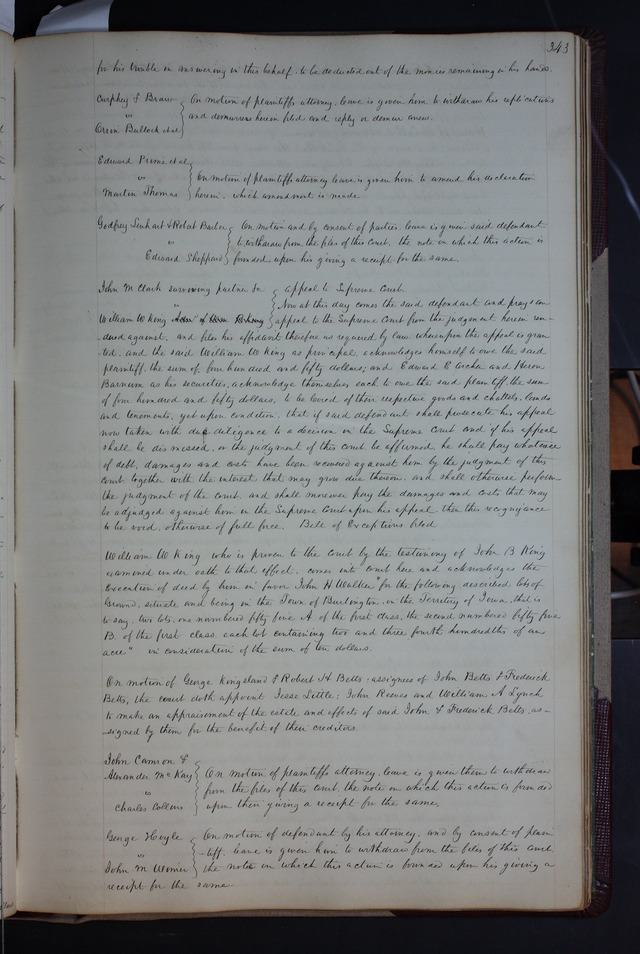 343
for his trouble in answering in this behalf, to be deducted out of the monies remaining in his hands.
Curphey & Braw
vs
Orson Bullock et al
On motion of plaintiffs attorney, leave is given him to withdraw his replications
and demurrers herein filed and reply or demur anew.
Edward Prime et al
vs
Martin Thomas
On motion of plaintiffs attorney leave is given him to amend his declaration
herein, which amendment is made
Godfrey Lenhart & Robert Barber
vs
Edward Sheppard
On motion and by consent of parties, leave is given said defendant
to withdraw from the files of this Court, the note on which this action is
founded upon his giving a receipt for the same.
John M Clark surviving partner &c
vs
William W King
appeal to Supreme Court
Now at this day comes the said defendant and prays an
appeal to the Supreme Court from the judgment herein ren-
-dered against, and files his affidavit therefore as required by law whereupon the appeal is gran
ted, and the said William W King as principal, acknowledges himself to owe the said
plaintiff, the sum of four hundred and fifty dollars, and Edward E Archer and Heron
Barnum as his securities, acknowledge themselves each to owe the said plaintiff, the sum
of four hundred and fifty dollars, to be levied of their respective goods and chattels, lands
and tenements, yet upon condition, that if said defendant shall prosecute his appeal
now taken with due diligence to a decision in the Supreme Court and if his appeal
shall be dismissed, or the judgment of this court be affirmed, he shall pay whatever
of debt, damages and costs have been recovered against him by the judgment of this
court together with the interest that may grow due thereon, and shall otherwise perform
the judgment of the court, and shall moreover pay the damages and costs that may
be adjudged against him in the Supreme Court upon his appeal, then this recognizance
to be void, otherwise of full force. Bill of Exceptions filed
William W King who is proven to the court by the testimony of John B King
examined under oath to that effect, comes into court here and acknowledges the
execution of deed by him in favor John H Walker "for the following described lots of
Ground, situate and being in the Town of Burlington, in the Territory of Iowa, that is
to say, two lots, one numbered fifty five A of the first class, the second numbered fifty five
B, of the first class, each lot containing two and three fourth hundredths of an
acre" in consideration of the sum of ten dollars.
On motion of George Kingsland & Robert H Betts, assignees of John Betts & Frederick
Betts, the court doth appoint Jesse Little, John Reeves and William A Lynch
to make an appraisement of the estate and effects of said John & Frederick Betts, as-
signed by them for the benefit of their creditors.
John Camron &
Alexander McKay
vs
Charles Collins
On motion of plaintiffs attorney, leave is given them to withdraw
from the files of this court, the note on which this action is founded
upon their giving a receipt for the same.
George Hoyle
vs
John M
On motion of defendant by his attorney, and by consent of plain
-tiff, leave is given him to withdraw from the files of this court,
the note on which this action is founded upon his giving a
receipt for the same.